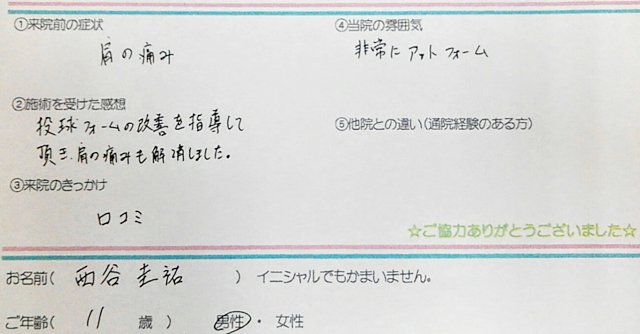 ①来院前の症状
肩の痛み
②施術を受けた感想
投球フォームの改善を指導して
頂き、肩の痛みも解消しました。
③来院のきっかけ
口コミ
④当院の雰囲気
非常にアットフォーム
⑤他院との違い(通院経験のある方)
☆ご協力ありがとうございました☆
お名前( 西谷圭祐 ) イニシャルでもかまいません。
ご年齢( 11 歳 ) 男性・女性